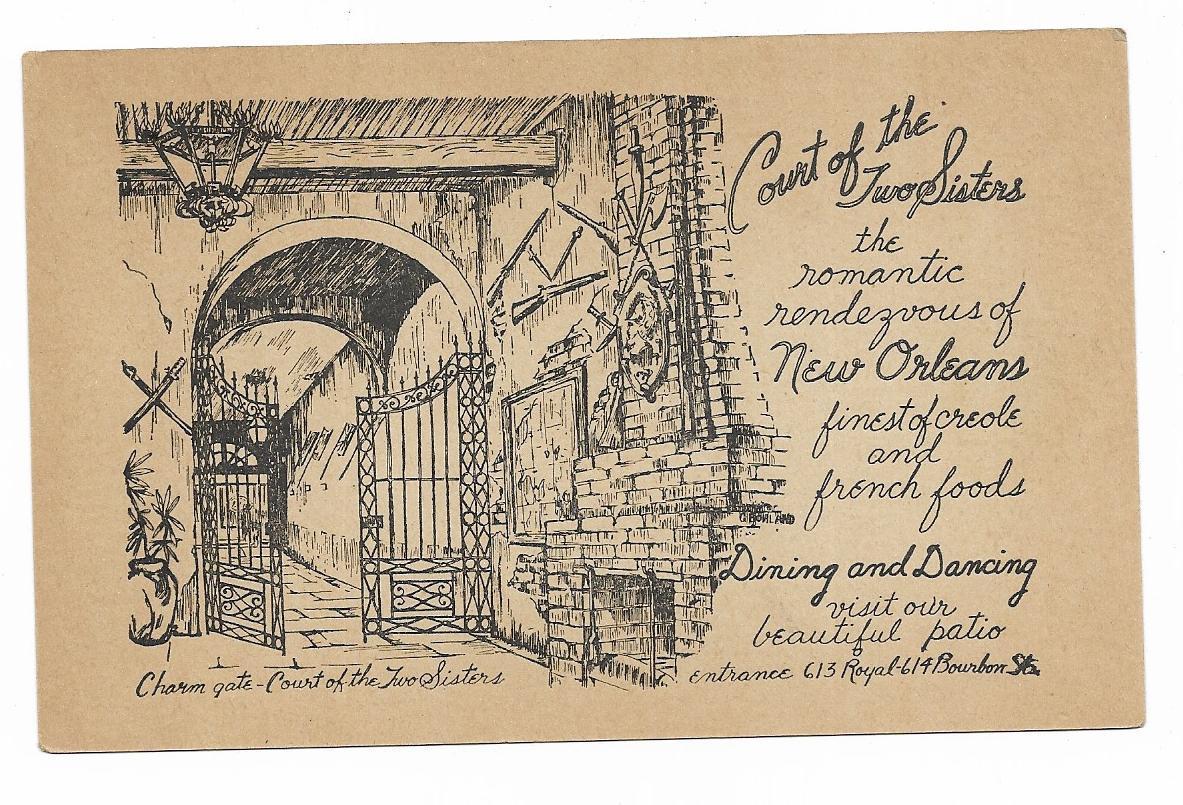 Court of the
Two Sisters
the
romantic
rendezvous of
New Orleans
finest of creole
and
french foods
Dining and Dancing
visit our
beautiful patio
entrance 613 Royal-614 Bourbon Sts.
Charm gate-Court of the Two Sisters